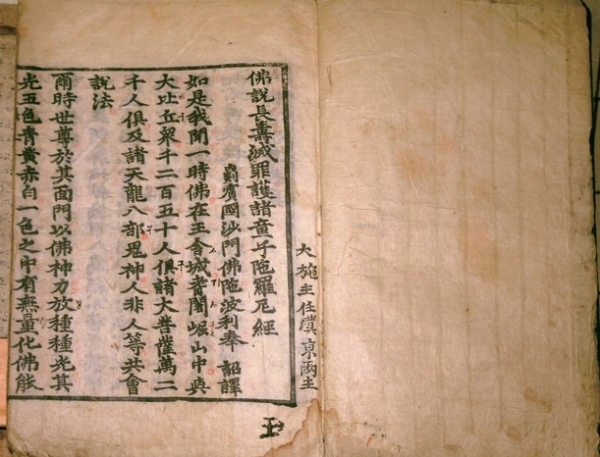 佛說長壽滅罪護諸童子陁羅尼經
罽賓國沙門佛陁波利奉 詔譯
如是我聞一時佛在王舍城耆闍崛山中與
大比丘眾千二百五十人俱諸大菩薩萬二
千人俱及諸天龍八部鬼神人非人等共會
說法
爾時世尊於其面門以佛神力放種種光其
光五色青黃赤白一色之中有無量化佛能
大施主任
兩主